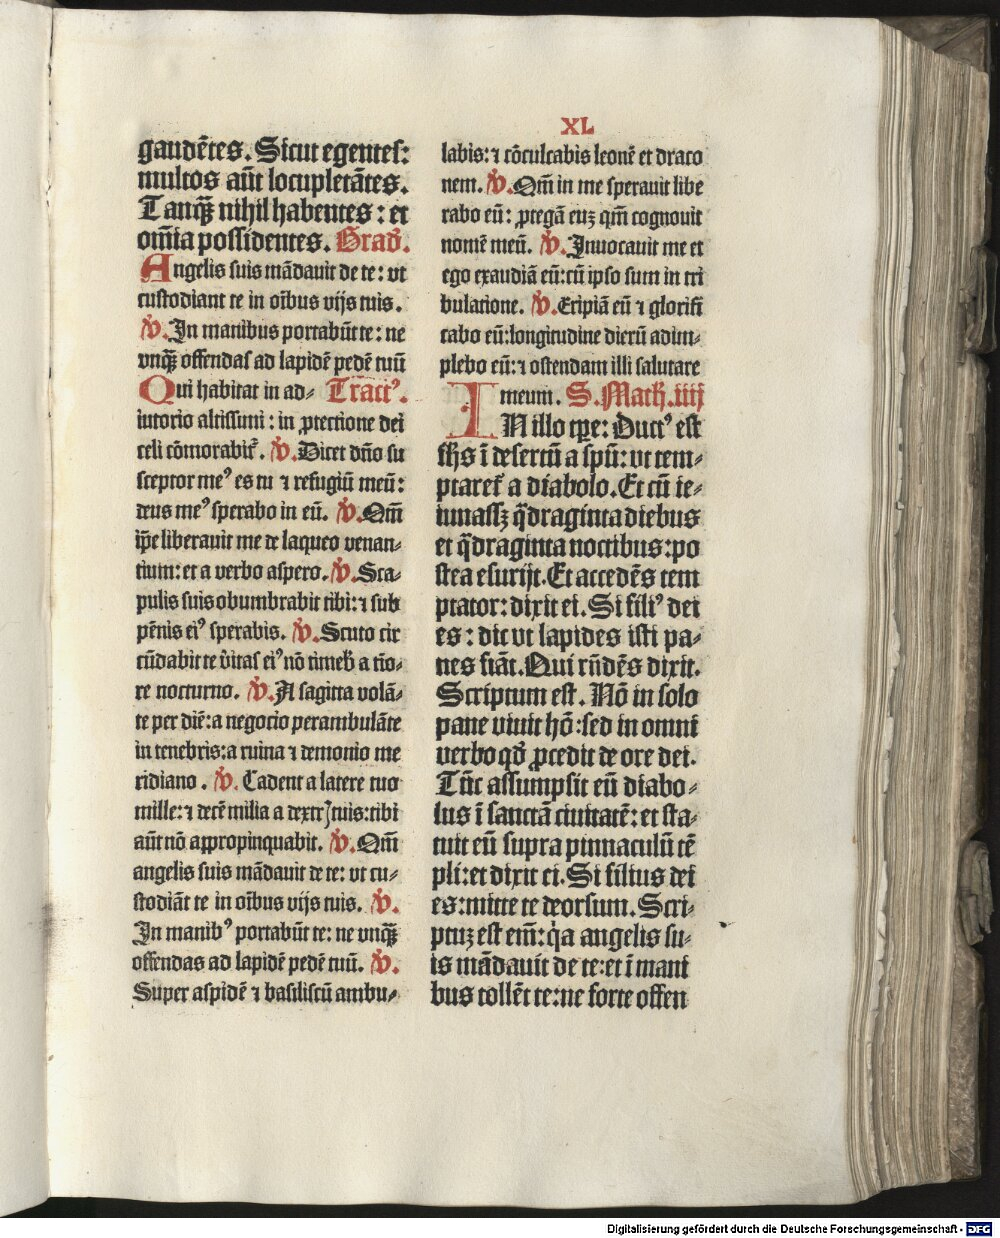 XL
gaudētes. Sicut egentes:
multos aūt locupletātes.
Tanqꝫ nihil habentes: et
om̄ia possidentes. Grad̄.
Angelis suis mādauit de te: vt
custodiant te in oībus vijs tuis.
℣. In manibus portabūt te: ne
vnqꝫ offendas ad lapidē pedē tuū
Qui habitat in ad⸗ Tractꝰ.
iutorio altissimi: in ꝓtectione dei
celi cōmorabit᷑. ℣. Dicet dn̄o su
sceptor meꝰ es tu ⁊ refugiū meū:
deus meꝰ sperabo in eū. ℣. Qm̄
ip̄e liberauit me de laqueo venan⸗
tium: et a verbo aspero. ℣. Sca⸗
pulis suis obumbrabit tibi: ⁊ sub
pēnis eiꝰ sperabis. ℣. Scuto cir
cūdabit te v̄itas eiꝰ nō timeb̄ a tīo⸗
re nocturno. ℣. A sagitta volā⸗
te per diē: a negocio perambulāte
in tenebris: a ruina ⁊ demonio me
ridiano. ℣. Cadent a latere tuo
mille: ⁊ decē milia a dextrꝭ tuis: tibi
aūt nō appropinquabit. ℣. Qm̄
angelis suis mādauit de te: vt cu⸗
stodiāt te in oībus vijs tuis. ℣.
In manibꝰ portabūt te: ne vnqꝫ
offendas ad lapidē pedē tuū. ℣.
Super aspidē ⁊ basiliscū ambu⸗
labis: ⁊ cōculcabis leonē et draco
nem. ℣. Qm̄ in me sperauit libe
rabo eū: ꝓtegā euꝫ qm̄ cognouit
nomē meū. ℣. Inuocauit me et
ego exaudiā eū: cū ipso sum in tri
bulatione. ℣. Eripiā eū ⁊ glorifi
cabo eū: longitudine dierū adim⸗
plebo eū: ⁊ ostendam illi salutare
meum. S. Math̄. iiij
IN illo tꝑe: Ductꝰ est
ih̄s ī desertū a spū: vt tem⸗
ptaret᷑ a diabolo. Et cū ie⸗
iunassꝫ q̄draginta diebus
et q̄draginta noctibus: po
stea esurijt. Et accedēs tem
ptator: dixit ei. Si filiꝰ dei
es: dic vt lapides isti pa⸗
nes fiāt. Qui rn̄dēs dixit.
Scriptum est. Nō in solo
pane viuit hō: sed in omni
verbo qd̄ ꝓcedit de ore dei.
Tūc assumpsit eū diabo⸗
lus ī sanctā ciuitatē: et sta⸗
tuit eū supra pinnaculū tē
pli: et dixit ei. Si filius dei
es: mitte te deorsum. Scri⸗
ptuꝫ est em̄: q̄a angelis su⸗
is mādauit de te: et ī mani
bus tollēt te: ne forte offen
Digitalisierung gefördert durch die Deutsche Forschungsgemeinschaft - DFG